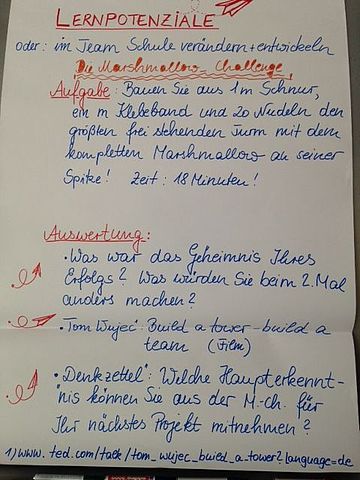 LERNPOTENZIALE
oder: im Team Schule verändern + entwickeln
Die Marshmallow-Challenge
Aufgabe: Bauen Sie aus 1m Schnur,
ein m Klebeband und 20 Nudeln den
größten frei stehenden Turm mit dem
kompletten Marshmallow an seiner
Spitze! Zeit: 18 Minuten!
Auswertung:
• Was war das Geheimnis Ihres
Erfolgs? Was würden Sie beim 2. Mal
anders machen?
• Tom Wujec: Build a tower - build a
team (Film)
• "Denkzettel": Welche Haupterkennt-
nis können Sie aus der M.-ch. für
Ihr nächstes Projekt mitnehmen?
1) www.ted.com/talk/tom_wujec_build_a_tower?language=de